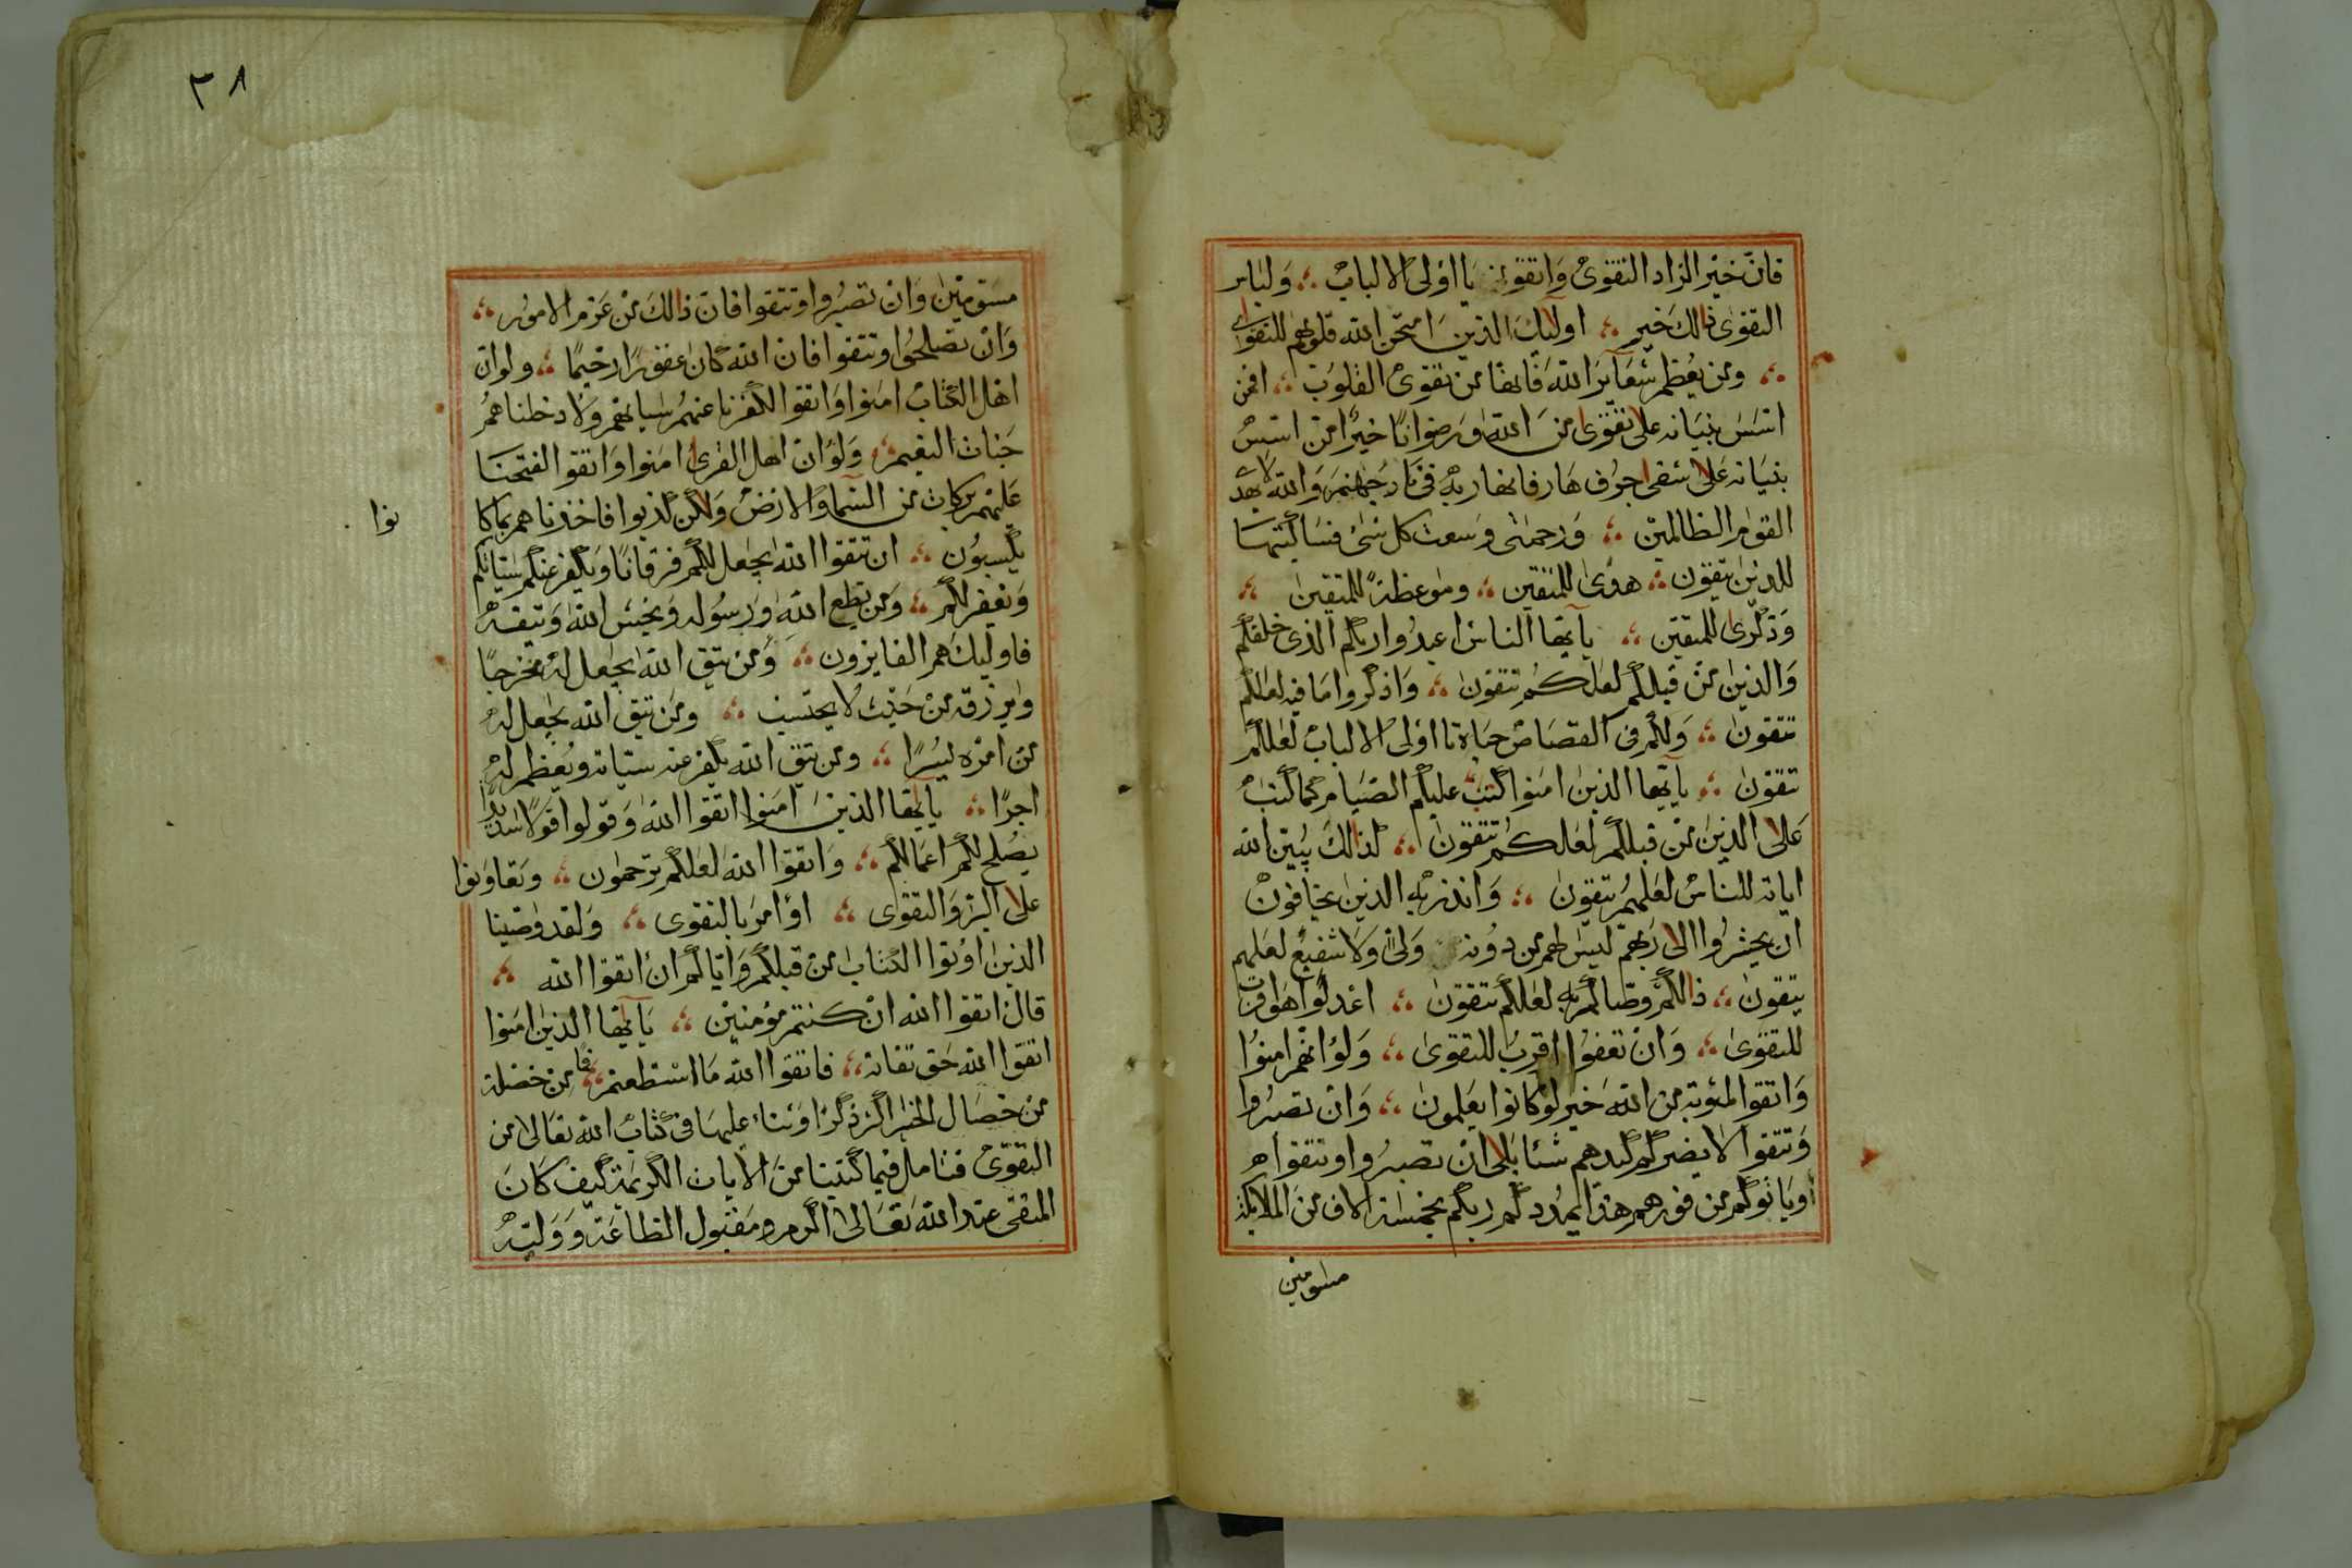 فانّ خير الزاد التقوى واتقون يا اولى الالباب ؞ ولباس
التقوى ذالك خير ؞ اولئك الذين امتحن الله قلوبهم للتقوى
؞ ومن يعظم شعآير الله فانها من تقوى القلوب ؞ افمن
اسّس بنيانه على تقوى من الله ورضوانًا خيرًا من اسّس
بنيانه على شفى جرف هار فانهار به فى نار جهنم والله لا يهد
القوم الظالمين ؞ ورحمتى وسعت كل شئ فساكتبها
للذين يتقون ؞ هدًى للمتقين ؞ وموعظةً للمتقين ؞
وذكرى للمتقين ؞ يآ ايها الناس اعبدوا ربكم الذى خلقكم
والذين من قبلكم لعلكم تتقون ؞ واذكروا ما فيه لعلكم
تتقون ؞ ولكم فى القصاص حياة يا اولى الالباب لعلكم
تتقون ؞ يآ ايها الذين امنوا كتب عليكم الصيام كما كتب
على الذين من قبلكم لعلكم تتقون ؞ كذالك يبيّن الله
اياته للناس لعلهم يتقون ؞ وانذر به الذين يخافون
ان يحشروا الى ربهم ليس لهم من دونه ولىّ ولا شفيع لعلهم
يتقون ؞ ذالكم وصّاكم به لعلكم تتقون ؞ اعدلوا هو اقرب
للتقوى ؞ وان تعفوا اقرب للتقوى ؞ ولو انّهم امنوا
واتقوا لمثوبة من الله خير لو كانوا يعلمون ؞ وان تصبروا
وتتقوا لا يضركم كيدهم شئا بلى ان تصبروا وتتقوا
وياتوكم من فورهم هذا يمددكم ربكم بخمسة الاف من الملائكة
مسومين
٣٨
مسومين وان تصبروا وتتقوا فانّ ذالك من عزم الامور ؞
وان تصلحوا وتتقوا فان الله كان غفورًا رحيمًا ؞ ولو انّ
اهل الكتاب امنوا واتقوا لكفرنا عنهم سياتهم ولادخلناهم
جنات النعيم ؞ ولو ان اهل القرى امنوا واتقوا لفتحنا
عليهم بركات من السمآ والارض ولكن كذبوا فاخذناهم بما كا
نوا
يكسبون ؞ ان تتقوا الله يجعل لكم فرقانًا ويكفر عنكم سيّاتكم
ويغفر لكم ؞ ومن يطع الله ورسوله ويخش الله ويتقه
فاولئك هم الفايزون ؞ ومن يتق الله يجعل له مخرجًا
ويرزقه من حيث لا يحتسب ؞ ومن يتق الله يجعل له
من امره يسرًا ؞ ومن يتق الله يكفر عنه سيّاته ويعظم له
اجرًا ؞ يآ ايها الذين امنوا اتقوا الله وقولوا قولًا سديدًا
يصلح لكم اعمالكم ؞ واتقوا الله لعلكم ترحمون ؞ وتعاونوا
على البرّ والتقوى ؞ او امر بالتقوى ؞ ولقد وصّينا
الذين اوتوا الكتاب من قبلكم وايّاكم ان اتقوا الله ؞
قال اتقوا الله ان كنتم مؤمنين ؞ يآ ايها الذين امنوا
اتقوا الله حق تقاته ؞ فاتقوا الله ما استطعتم ؞ فما من خصلة
من خصال الخير اكثر ذكرًا وثناء عليها فى كتاب الله تعالى من
التقوى فتامل فيما كتبنا من الايات الكريمة كيف كان
المتقى عند الله تعالى اكرم ومقبول الطاعة ووليّه